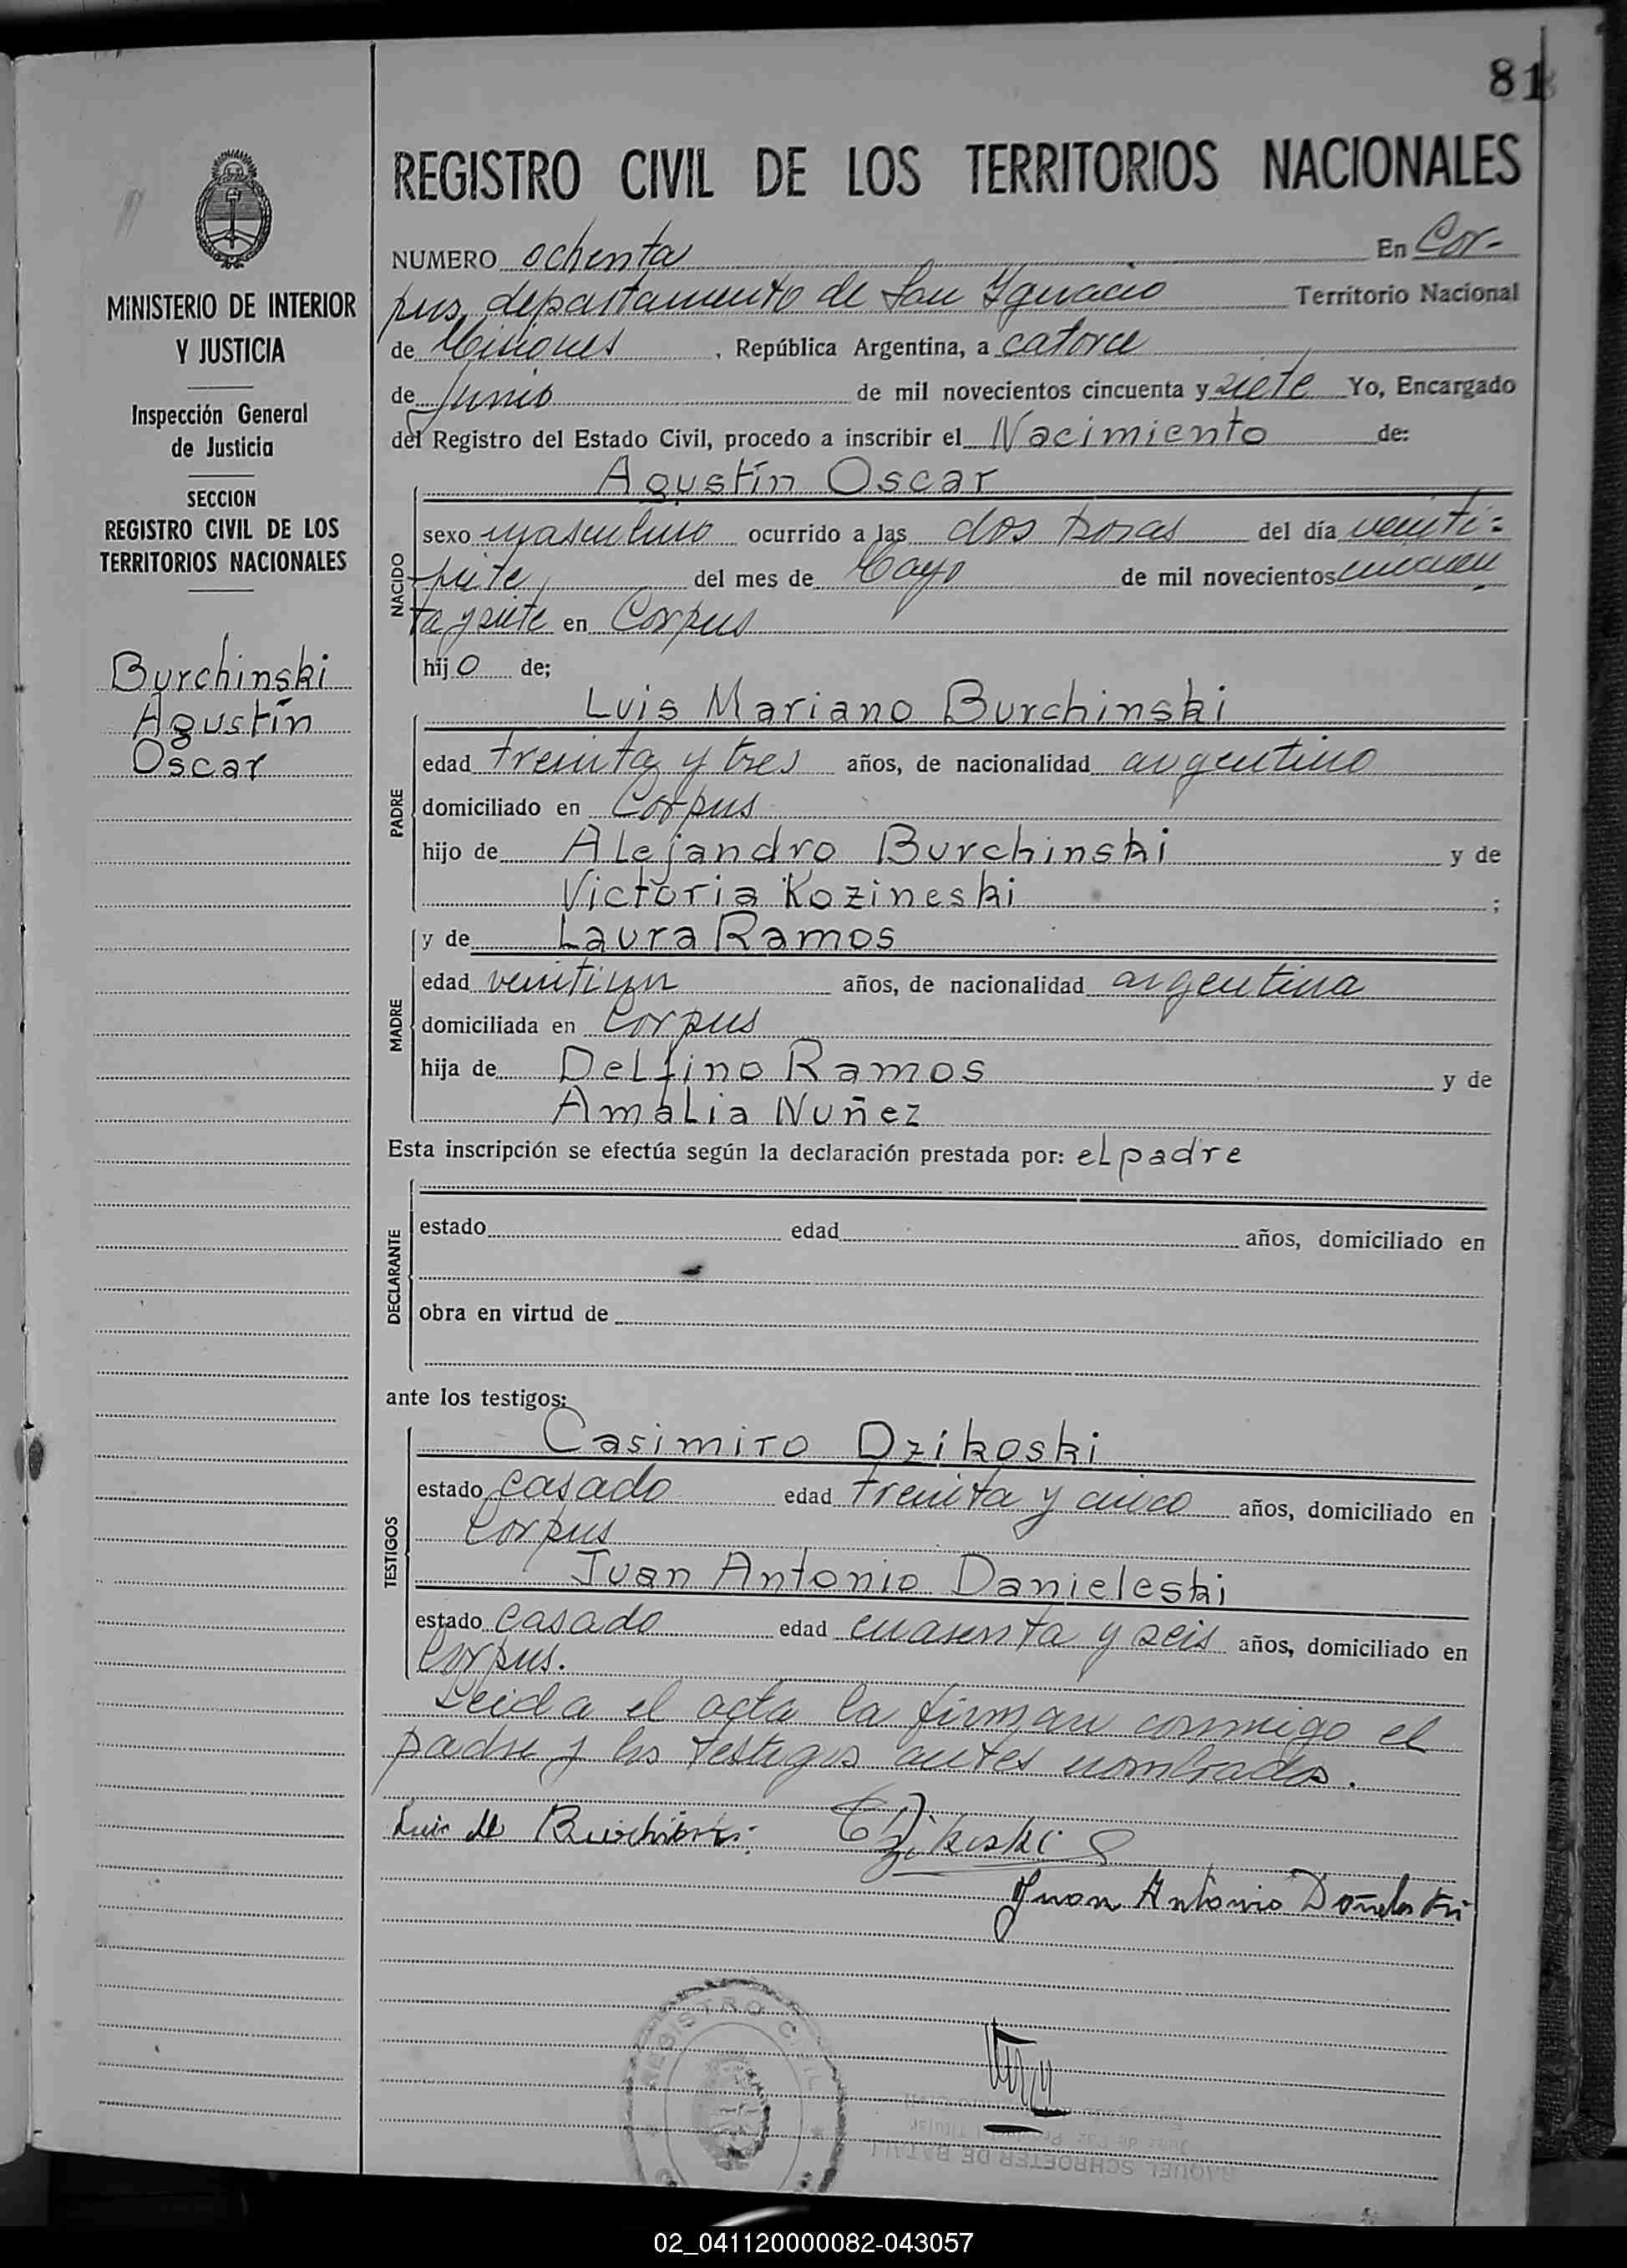 81
REGISTRO CIVIL DE LOS TERRITORIOS NACIONALES
MINISTERIO DE INTERIOR
Y JUSTICIA
Inspección General
de Justicia
SECCION
REGISTRO CIVIL DE LOS
TERRITORIOS NACIONALES
Burchinski
Agustín
Oscar
NUMERO ochenta En Cor-
pus, departamento de San Ignacio Territorio Nacional
de Misiones, República Argentina, a catorce
de Junio de mil novecientos cincuenta y siete Yo, Encargado
del Registro del Estado Civil, procedo a inscribir el Nacimiento de:
NACIDO
Agustín Oscar
sexo masculino ocurrido a las dos horas del día veinti=
siete, del mes de Mayo de mil novecientos cincuen
ta y siete en Corpus
hijo de;
PADRE
Luis Mariano Burchinski
edad treinta y tres años, de nacionalidad argentino
domiciliado en Corpus
hijo de Alejandro Burchinski y de
Victoria Kozineski ;
MADRE
y de Laura Ramos
edad veintiun años, de nacionalidad argentina
domiciliada en Corpus
hija de Delfino Ramos y de
Amalia Nuñez
Esta inscripción se efectúa según la declaración prestada por: el padre
DECLARANTE
estado edad años, domiciliado en
obra en virtud de
ante los testigos:
TESTIGOS
Casimiro Dzikoski
estado casado edad treinta y cinco años, domiciliado en
Corpus
Juan Antonio Danieleski
estado casado edad cuarenta y seis años, domiciliado en
Corpus.
Leida el acta la firman conmigo el
padre y los testigos antes nombrados.
Luis M Burchinski
Juan Antonio
REGISTRO CIVIL
RAQUEL SCHROETER DE
02_041120000082-043057